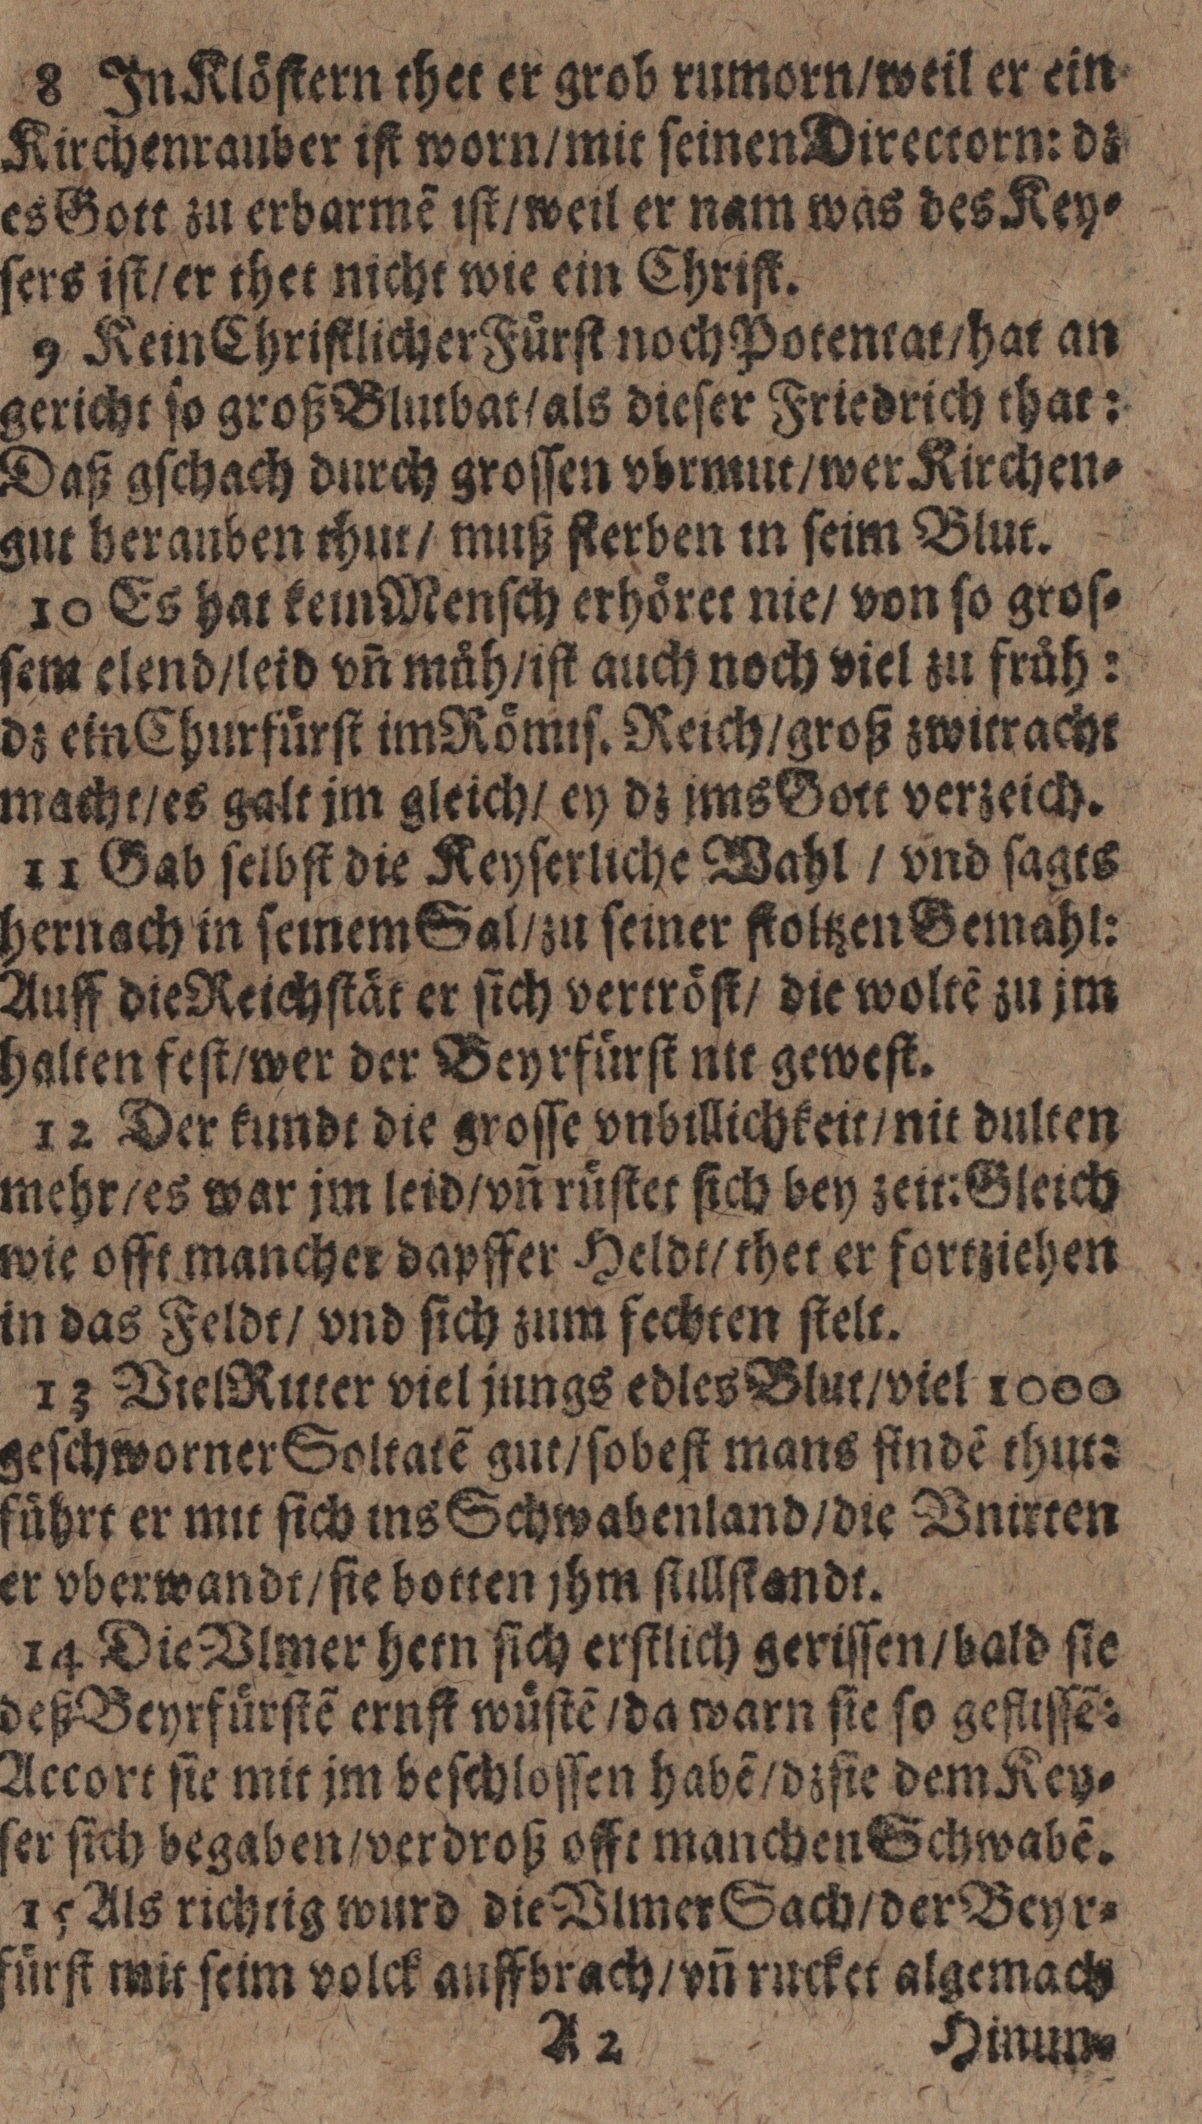 8 In Klöstern thet er grob rumorn/weil er ein
Kirchenrauber ist worn/mit seinen Directorn: dz
es Gott zu erbarmẽ ist/weil er nam was des Key-
sers ist/er thet nicht wie ein Christ.
9 Kein Christlicher Fürst noch Potentat/hat an
gericht so groß Blutbat/als dieser Friedrich that:
Daß gschach durch grossen vbrmut/wer Kirchen-
gut berauben thut/ muß sterben in seim Blut.
10 Es hat kein Mensch erhöret nie/ von so gros-
sem elend/leid vñ müh/ist auch noch viel zu früh:
dz ein Churfürst im Römis. Reich/groß zwitracht
macht/es galt jm gleich/ ey dz jms Gott verzeich.
11 Gab selbst die Keyserliche Wahl / vnd sagts
hernach in seinem Sal/zu seiner stoltzen Gemahl:
Auff die Reichstät er sich vertröst/ die woltẽ zu jm
halten fest/wer der Beyrfürst nit gewest.
12 Der kundt die grosse vnbillichkeit/nit dulten
mehr/es war jm leid/vñ rüstet sich bey zeit: Gleich
wie offt mancher dapffer Heldt/thet er fortziehen
in das Feldt/ vnd sich zum fechten stelt.
13 Viel Ritter viel jungs edles Blut/viel 1000
geschworner Soltatẽ gut/so best mans findẽ thut:
führt er mit sich ins Schwabenland/die Vnirten
er vberwandt/sie botten jhm stillstandt.
14 Die Vlmer hetn sich erstlich gerissen/bald sie
deß Beyrfürstẽ ernst wüstẽ/da warn sie so geflissẽ:
Accort sie mit jm beschlossen habẽ/dz sie dem Key-
ser sich begaben/verdroß offt manchen Schwabẽ.
15 Als richtig wurd die Vlmer Sach/der Beyr-
fürst mit seim volck auffbrach/vñ rucket algemach
A 2 Hinun-